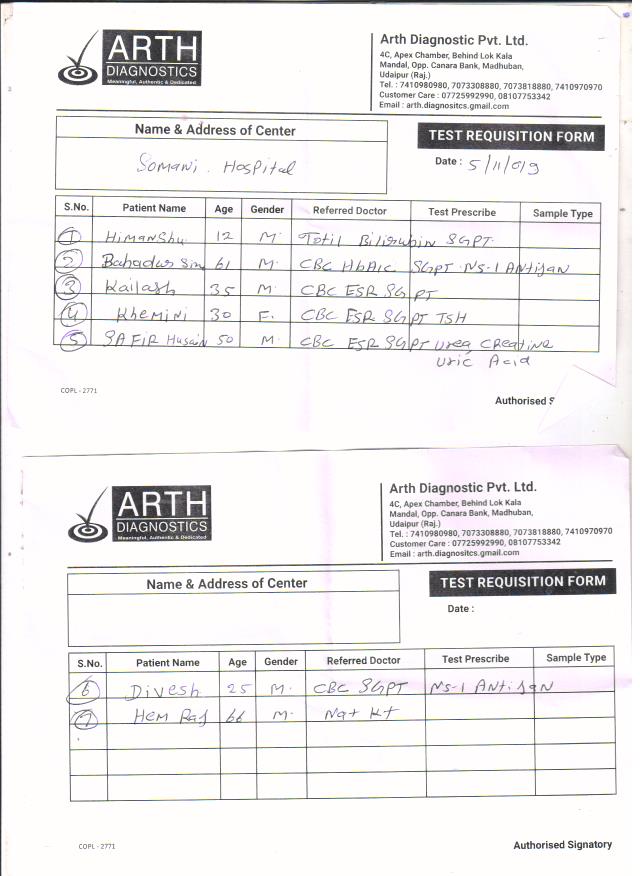 ARTH
DIAGNOSTICS
Meaningful, Authentic & Dedicated
Arth Diagnostic Pvt. Ltd.
4C, Apex Chamber, Behind Lok Kala
Mandal, Opp. Canara Bank, Madhuban,
Udaipur (Raj.)
Tel. : 7410980980, 7073308880, 7073818880, 7410970970
Customer Care : 07725992990, 08107753342
Email : arth.diagnositcs.gmail.com
Name & Address of Center
Somani . Hospital
TEST REQUISITION FORM
Date : 5/11/019
S.No. Patient Name Age Gender Referred Doctor Test Prescribe Sample Type
1 Himanshu 12 M. Totil Bilirubin SGPT.
2 Bahadur Sin 61 M. CBC HbA1c SGPT . NS-1 Antijan
3 Kailash 35 M. CBC ESR SGPT
4 Khemini 30 F. CBC ESR SGPT TSH
5 SAFIR Husain 50 M. CBC ESR SGPT Urea Creatine
Uric Acid
COPL - 2771
Authorised S
ARTH
DIAGNOSTICS
Meaningful, Authentic & Dedicated
Arth Diagnostic Pvt. Ltd.
4C, Apex Chamber, Behind Lok Kala
Mandal, Opp. Canara Bank, Madhuban,
Udaipur (Raj.)
Tel. : 7410980980, 7073308880, 7073818880, 7410970970
Customer Care : 07725992990, 08107753342
Email : arth.diagnositcs.gmail.com
Name & Address of Center
TEST REQUISITION FORM
Date :
S.No. Patient Name Age Gender Referred Doctor Test Prescribe Sample Type
6 Divesh 25 M. CBC SGPT NS-1 Antijan
7 Hem Raj 66 M. Na+ K+
COPL - 2771
Authorised Signatory